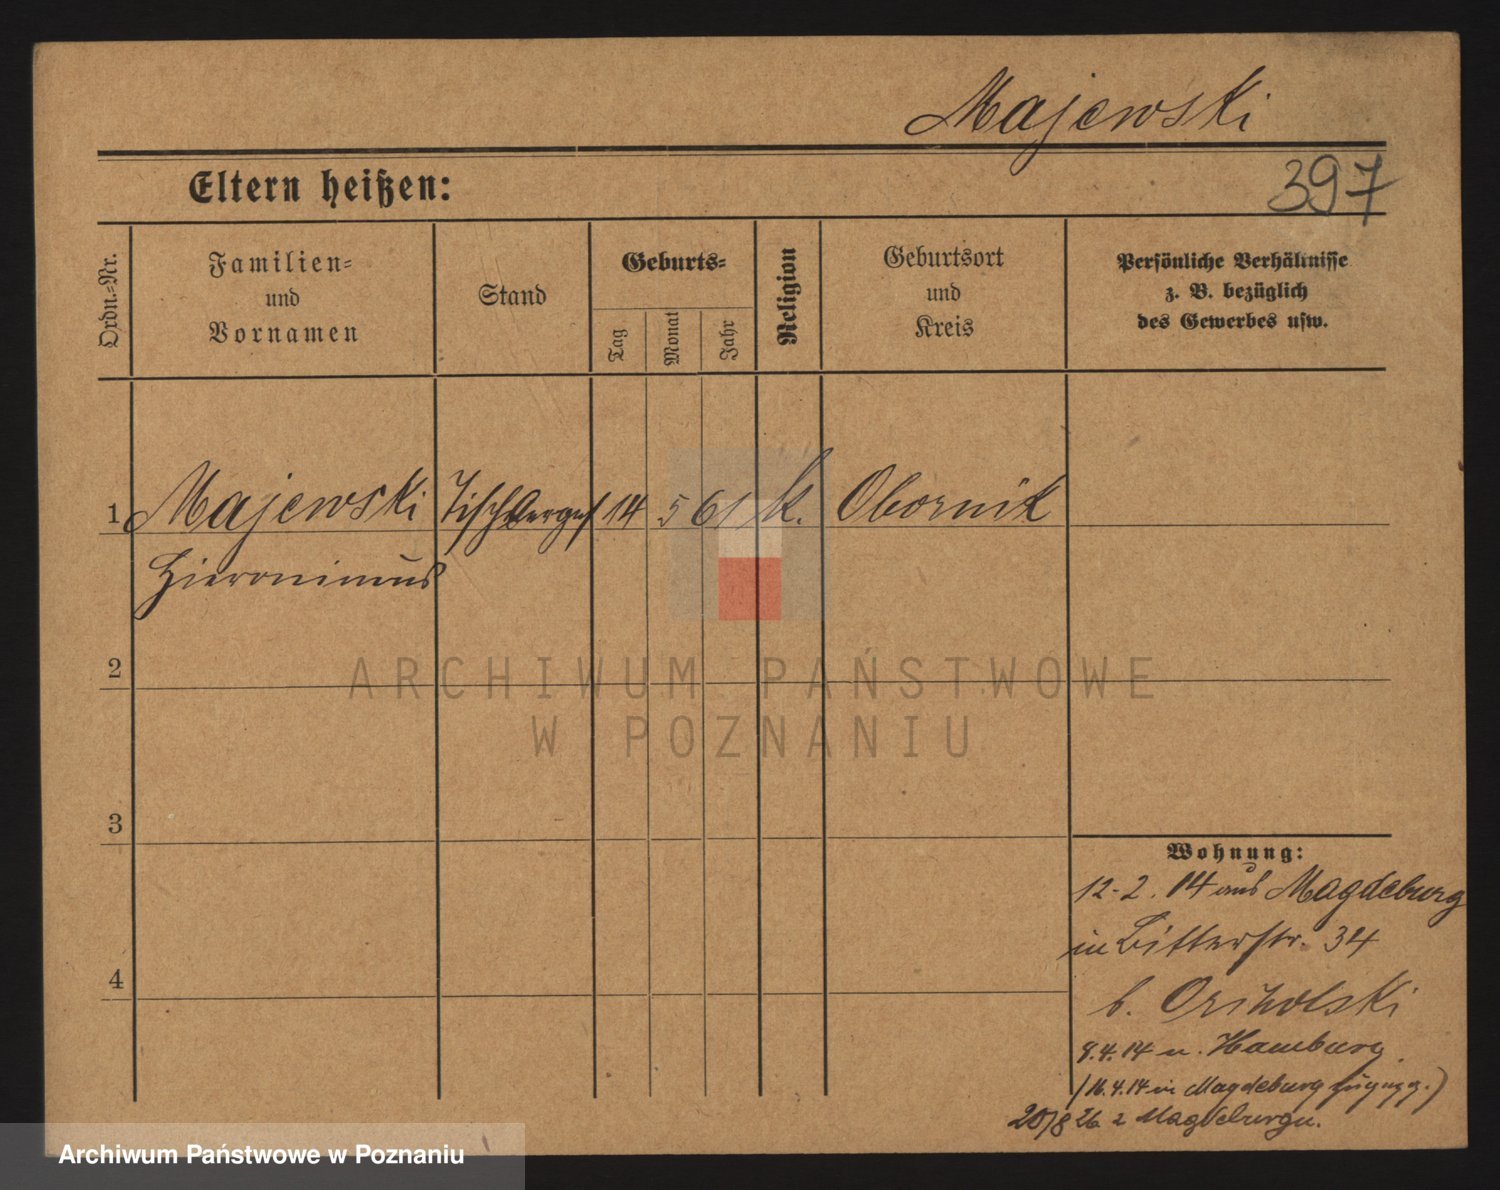 Majewski
Eltern heißen:
397
Ordn.=Nr.
Familien=
und
Vornamen
Stand
Geburts=
Tag
Monat
Jahr
Religion
Geburtsort
und
Kreis
Persönliche Verhältnisse
z. B. bezüglich
des Gewerbes usw.
1 Majewski 14 5 61 k. Obornik
Hieronimus
2
ARCHIWUM PAŃSTWOWE
W POZNANIU
3
Wohnung:
12-2.14 aus Magdeburg
in Bitterstr. 34
b.
4
8.4.14 n. Hamburg.
(16.4.14 in Magdeburg zugezg.)
20/8 26 z Magdeburgu.
Archiwum Państwowe w Poznaniu